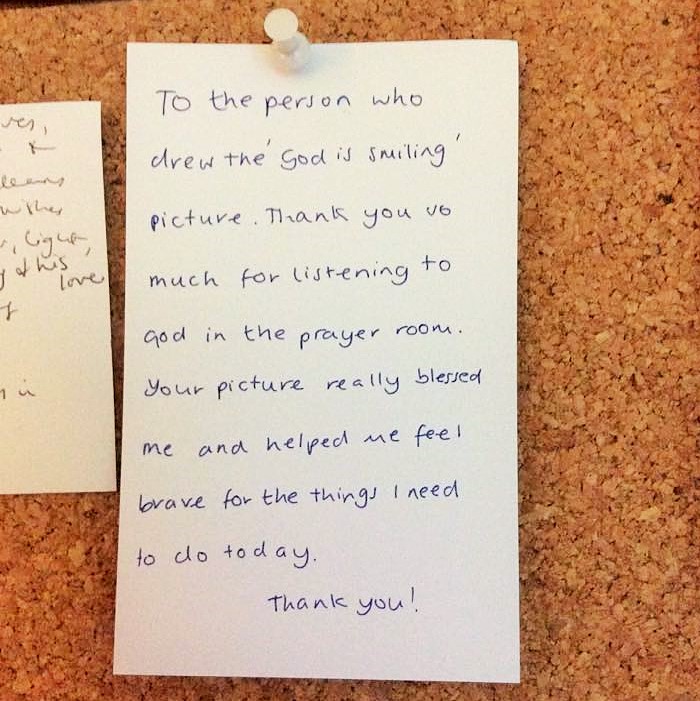 To the person who
drew the 'God is smiling'
picture. Thank you so
much for listening to
God in the prayer room.
Your picture really blessed
me and helped me feel
brave for the things I need
to do today.
Thank you!
wishes
light,
of his
love